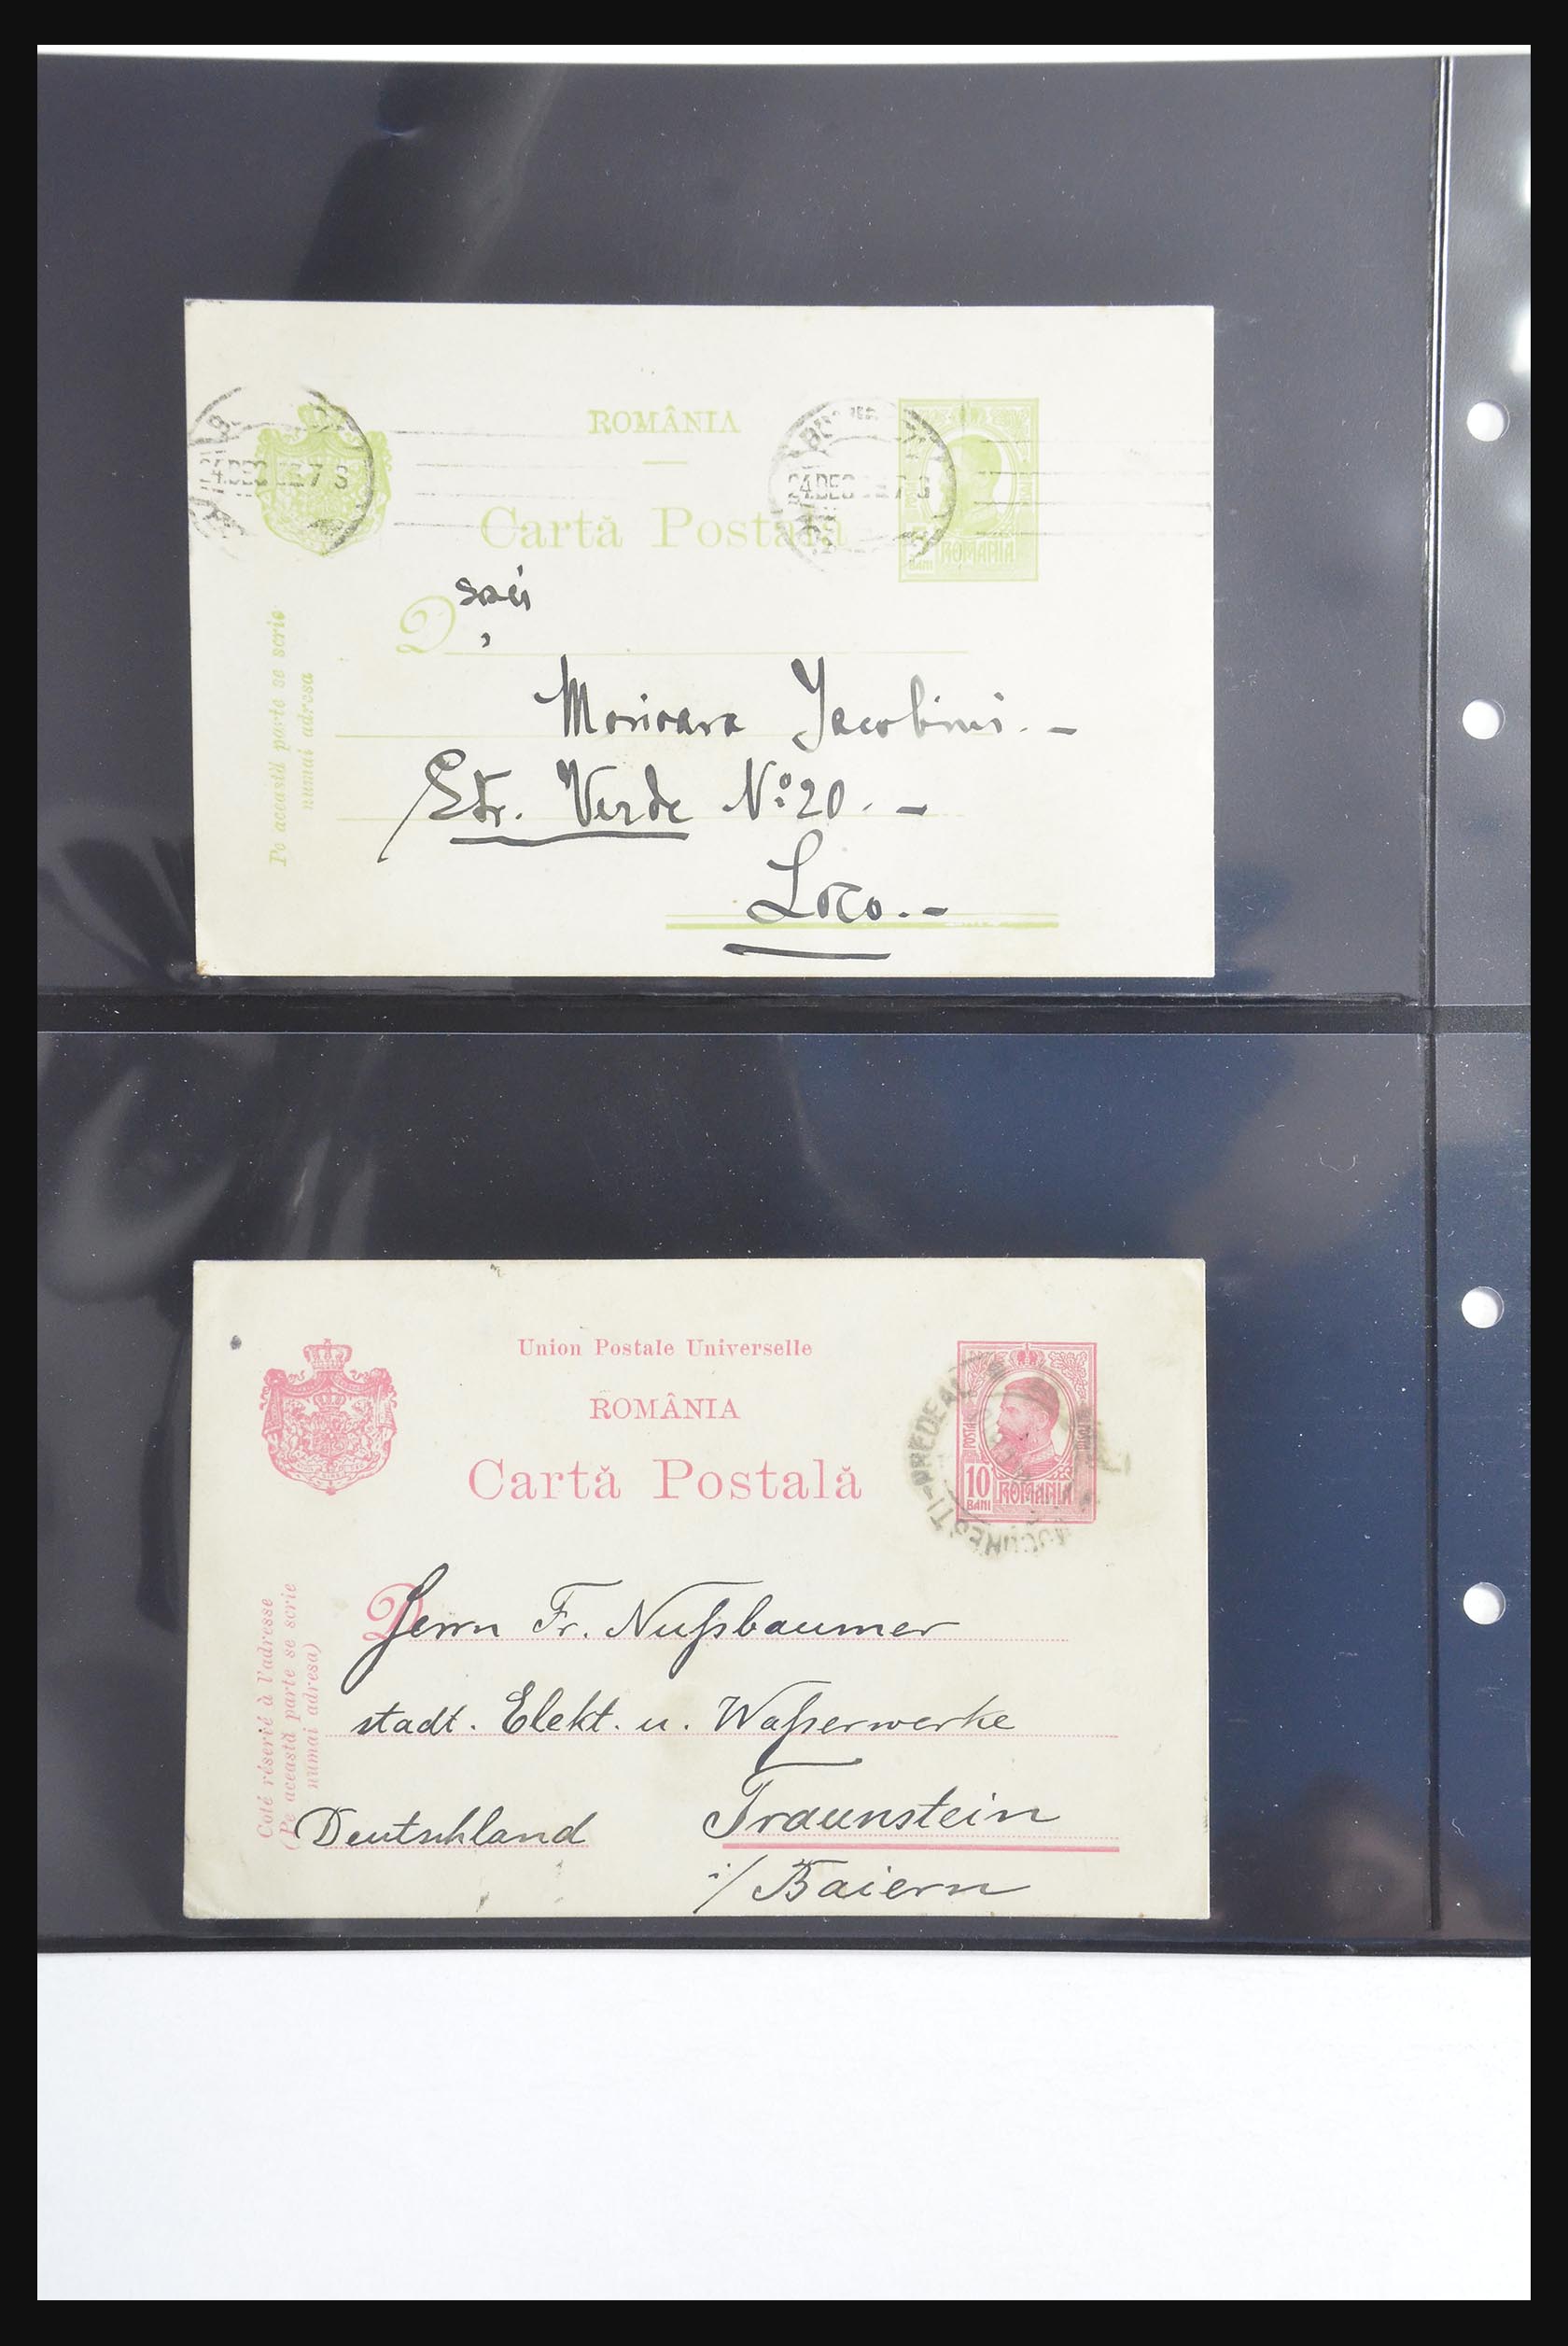 ROMÂNIA
Cartă Postală
24.DEC 7 S
24 DEC
BANI ROMANIA
Pe această parte se scrie
numai adresa
D
Jacobini. -
Str. Verde Nº 20. -
Loco. -
Union Postale Universelle
ROMÂNIA
Cartă Postală
BUCUREȘTI-PREDEAL
POSTA
10
BANI
ROMANIA
Coté réservé à l'adresse
(Pe această parte se scrie
numai adresa)
D
Herrn Fr. Nußbaumer
stadt. Elekt. u. Waßerwerke
Deutschland Traunstein
i/ Baiern